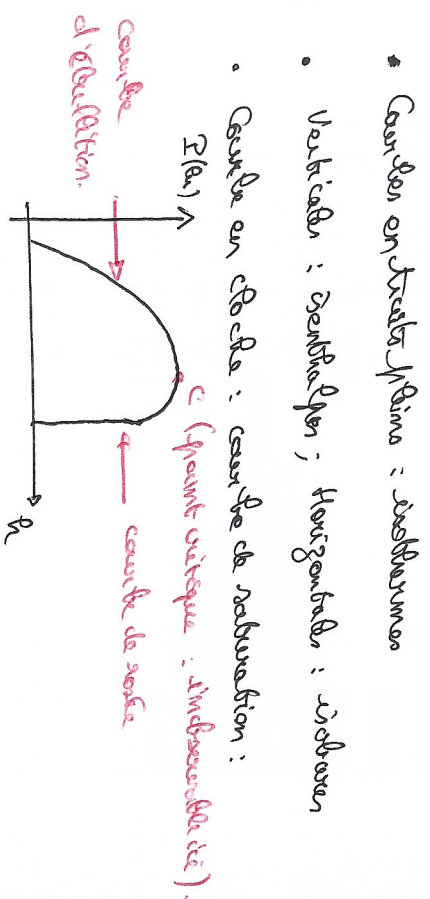 • Courbes en traits pleins : isothermes
• Verticales : isenthalpes ; Horizontales : isobares
• Courbe en cloche : courbe de saturation :
C (point critique : inobservable ici).
courbe d'ébullition.
courbe de rosée
h